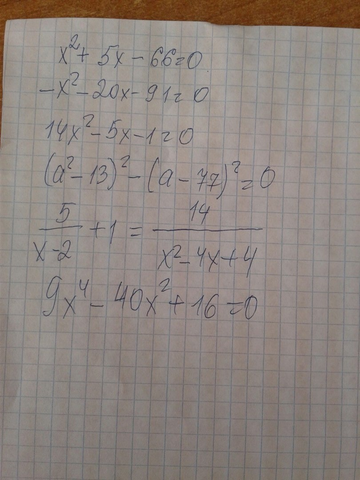 x² + 5x - 66 = 0
-x² - 20x - 91 = 0
14x² - 5x - 1 = 0
(a² - 13)² - (a - 77)² = 0
5/(x - 2) + 1 = 14/(x² - 4x + 4)
9x⁴ - 40x² + 16 = 0